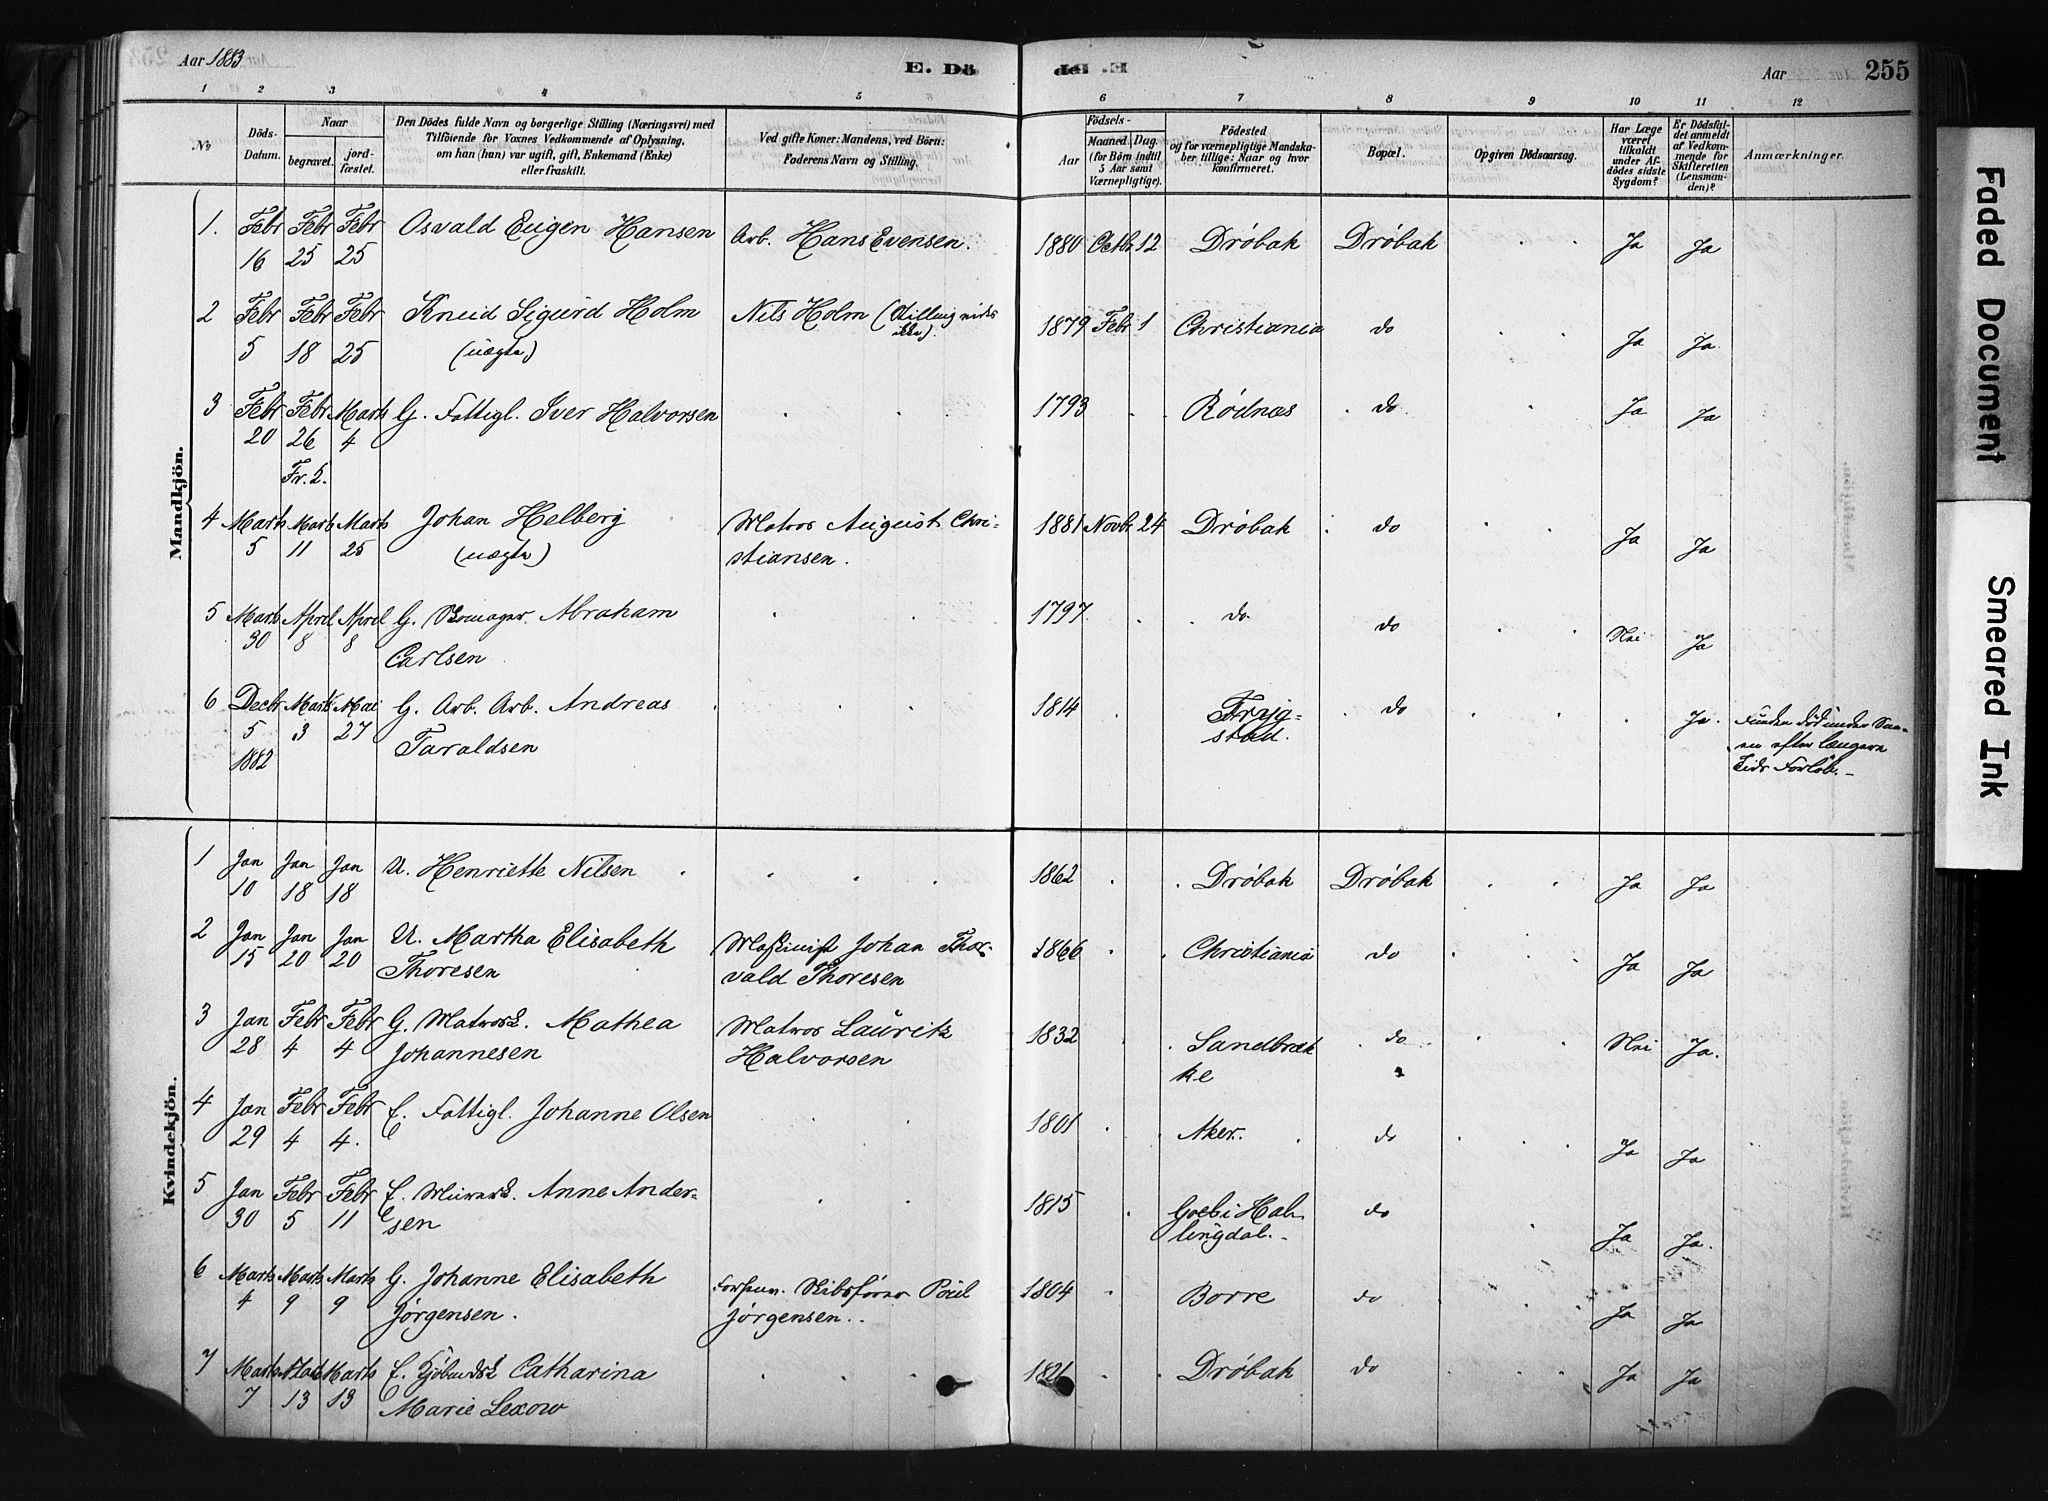 Aar 1883
E. Dö
de E.
Aar
255
1 2 3 4 5 6 7 8 9 10 11 12
No
Döds-
Datum.
Naar
begravet.
jord-
fæstet.
Den Dödes fulde Navn og borgerlige Stilling (Næringsvei) med
Tilföiende for Voxnes Vedkommende af Oplysning,
om han (hun) var ugift, gift, Enkemand (Enke)
eller fraskilt.
Ved gifte Koner: Mandens, ved Börn:
Faderens Navn og Stilling.
Födsels-
Aar
Maaned. Dag.
(for Börn indtil
5 Aar samt
Værnepligtige).
Födested
og for værnepligtige Mandska-
ber tillige: Naar og hvor
konfirmeret.
Bopæl.
Opgiven Dödsaarsag.
Har Læge
været
tilkaldt
under Af-
dödes sidste
Sygdom?
Er Dödsfal-
det anmeldt
af Vedkom-
mende for
Skifteretten
(Lensman-
den)?
Anmærkninger.
Mandkjön.
1. Febr 16 Febr 25 Febr 25 Osvald Eugen Hansen Arb. Hans Evensen. 1880 Octbr 12 Drøbak Drøbak Ja Ja
2 Febr 5 Febr 18 Febr 25 Knud Sigurd Holm Nils Holm (Stilling vides
(uægte) ikke). 1879 Febr 1 Christiania do Ja Ja.
3 Febr 20 Febr 26 Marts 4 G. Fattigl. Iver Halvorsen 1793 Rødnæs do Ja Ja
Fr. L.
4 Marts 5 Marts 11 Marts 25 Johan Helberg Matros August Chri-
(uægte) stiansen. 1881 Novbr 24 Drøbak do Ja Ja
5 Marts 30 April 8 April 8 G. Abraham
Carlsen 1797 do do Nei Ja
6 Decbr 5 1882 Marts 3 Mai 27 G. Arb. Arb. Andreas
Taraldsen 1814 Tryg-
stad. do Ja. Funden død under Sne-
en efter længere
Tids Forløb.
Kvindekjön.
1 Jan 10 Jan 18 Jan 18 U. Henriette Nilsen 1862 Drøbak Drøbak Ja Ja
2 Jan 15 Jan 20 Jan 20 U. Martha Elisabeth Maskinist Johan Thor-
Thoresen vald Thoresen 1866 Christiania do Ja Ja
3 Jan 28 Febr 4 Febr 4 G. Matrosk. Mathea Matros Lauritz
Johannesen Halvorsen 1832 Sandbræk
ke do Nei Ja.
4 Jan 29 Febr 4 Febr 4. E. Fattigl. Johanne Olsen 1801 Aker. do Ja Ja
5 Jan 30 Febr 5 Febr 11 E. Murerk. Anne Ander-
sen 1815 Goel i Hal-
lingdal. do Ja Ja.
6 Marts 4 Marts 9 Marts 9 G. Johanne Elisabeth Forhenv. Skibsfører Poul
Jørgensen. Jørgensen. 1804 Borre do Ja Ja
7 Marts 7 Marts 13 Marts 13 E. Catharina
Marie Lexow 1821 Drøbak do Ja Ja
Faded Document
Smeared Ink